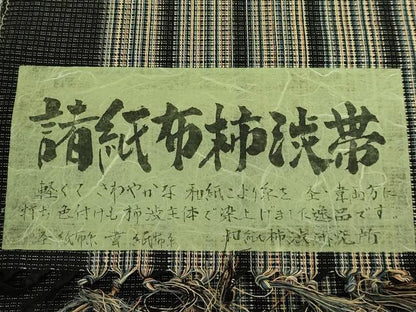 諸紙布柿渋帯
軽くてさわやかな和紙こより糸を 全・緯両方に
打ち色付けも柿渋主体で染上げました逸品です
紙布
和紙柿渋研究所